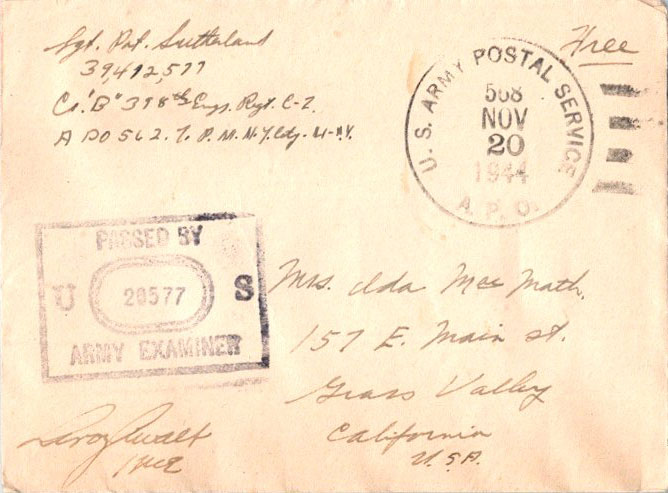 Sgt. Pat. Sutherland
39,412,577
Co. "B" 398th Engr. Regt.
A P O 562. % P. M. N. Y. N.Y.
Free
U. S. ARMY POSTAL SERVICE
568
NOV
20
1944
A. P. O.
PASSED BY
U 20577 S
ARMY EXAMINER
Mrs. Ida Mac Math.
157 E. Main st.
Grass Valley
California
U.S.A.